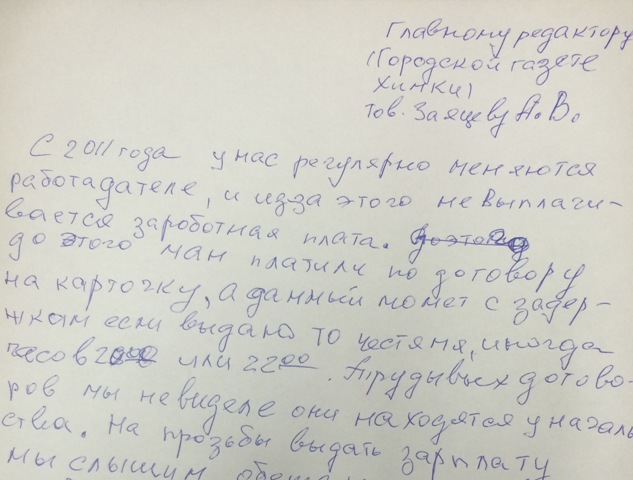 Главному редактору
(Городской газете
Химки)
тов. Заяцеву А. В.
С 2011 года у нас регулярно меняются
работадателе, и идза этого не выплачи-
вается зароботная плата.
до этого ман платили по договору
на карточку, а данный момет с задер-
жкам если выдано то честяня, иногда
часов или 22 00. Атрудывых догово-
ров мы невиделе они находятся у началь
ства. На прозьбы выдать зарплату
мы слышим